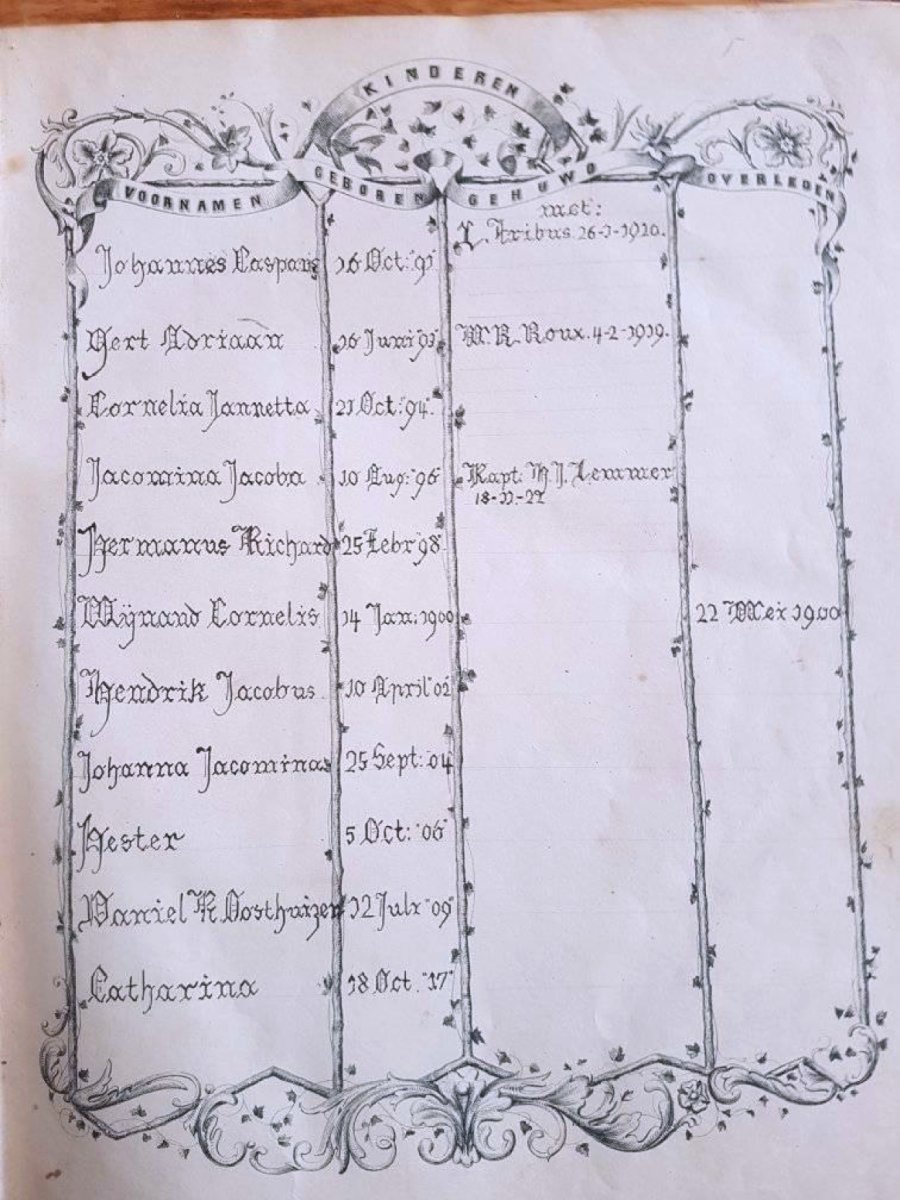 KINDEREN
VOORNAMEN GEBOREN GEHUWD OVERLEDEN
met:
L. Tribus. 26-1-1920.
Johannes Caspar 16 Oct: '91
Gert Adriaan 16 Juni '93 W. R. Roux. 4-2-1919.
Cornelia Jannetta 21 Oct: '94.
Jacomina Jacoba 10 Aug: '96 Kapt. H. J. Lemmer
18-11-22
Hermanus Richard 25 Febr '98
Wÿnand Cornelis 14 Jan: 1900 22 Mei 1900
Hendrik Jacobus 10 April '02
Johanna Jacomina 25 Sept: '04
Hester 5 Oct: '06
Daniel R Oosthuizen 12 Julr '09
Catharina 18 Oct. '17